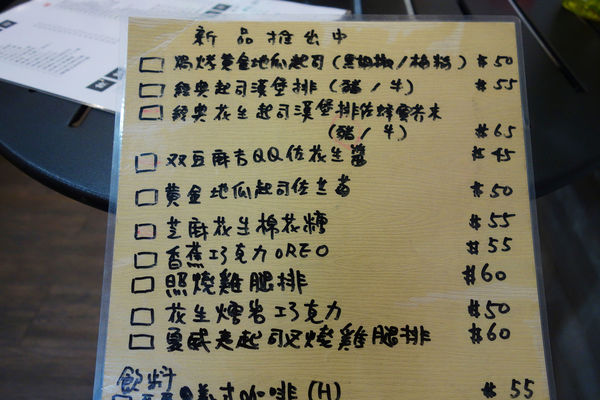 新品推出中
焗烤黃金地瓜起司(黑胡椒/梅粉) $50
經典起司漢堡排(豬/牛) $55
經典花生起司漢堡排佐蜂蜜
(豬/牛) $65
双豆麻吉QQ佐花生醬 $45
黃金地瓜起司佐 $50
芝麻花生棉花糖 $55
香蕉巧克力OREO $55
照燒雞腿排 $60
花生燻岩巧克力 $50
夏威夷起司照燒雞腿排 $60
飲料
義式咖啡(H) $55